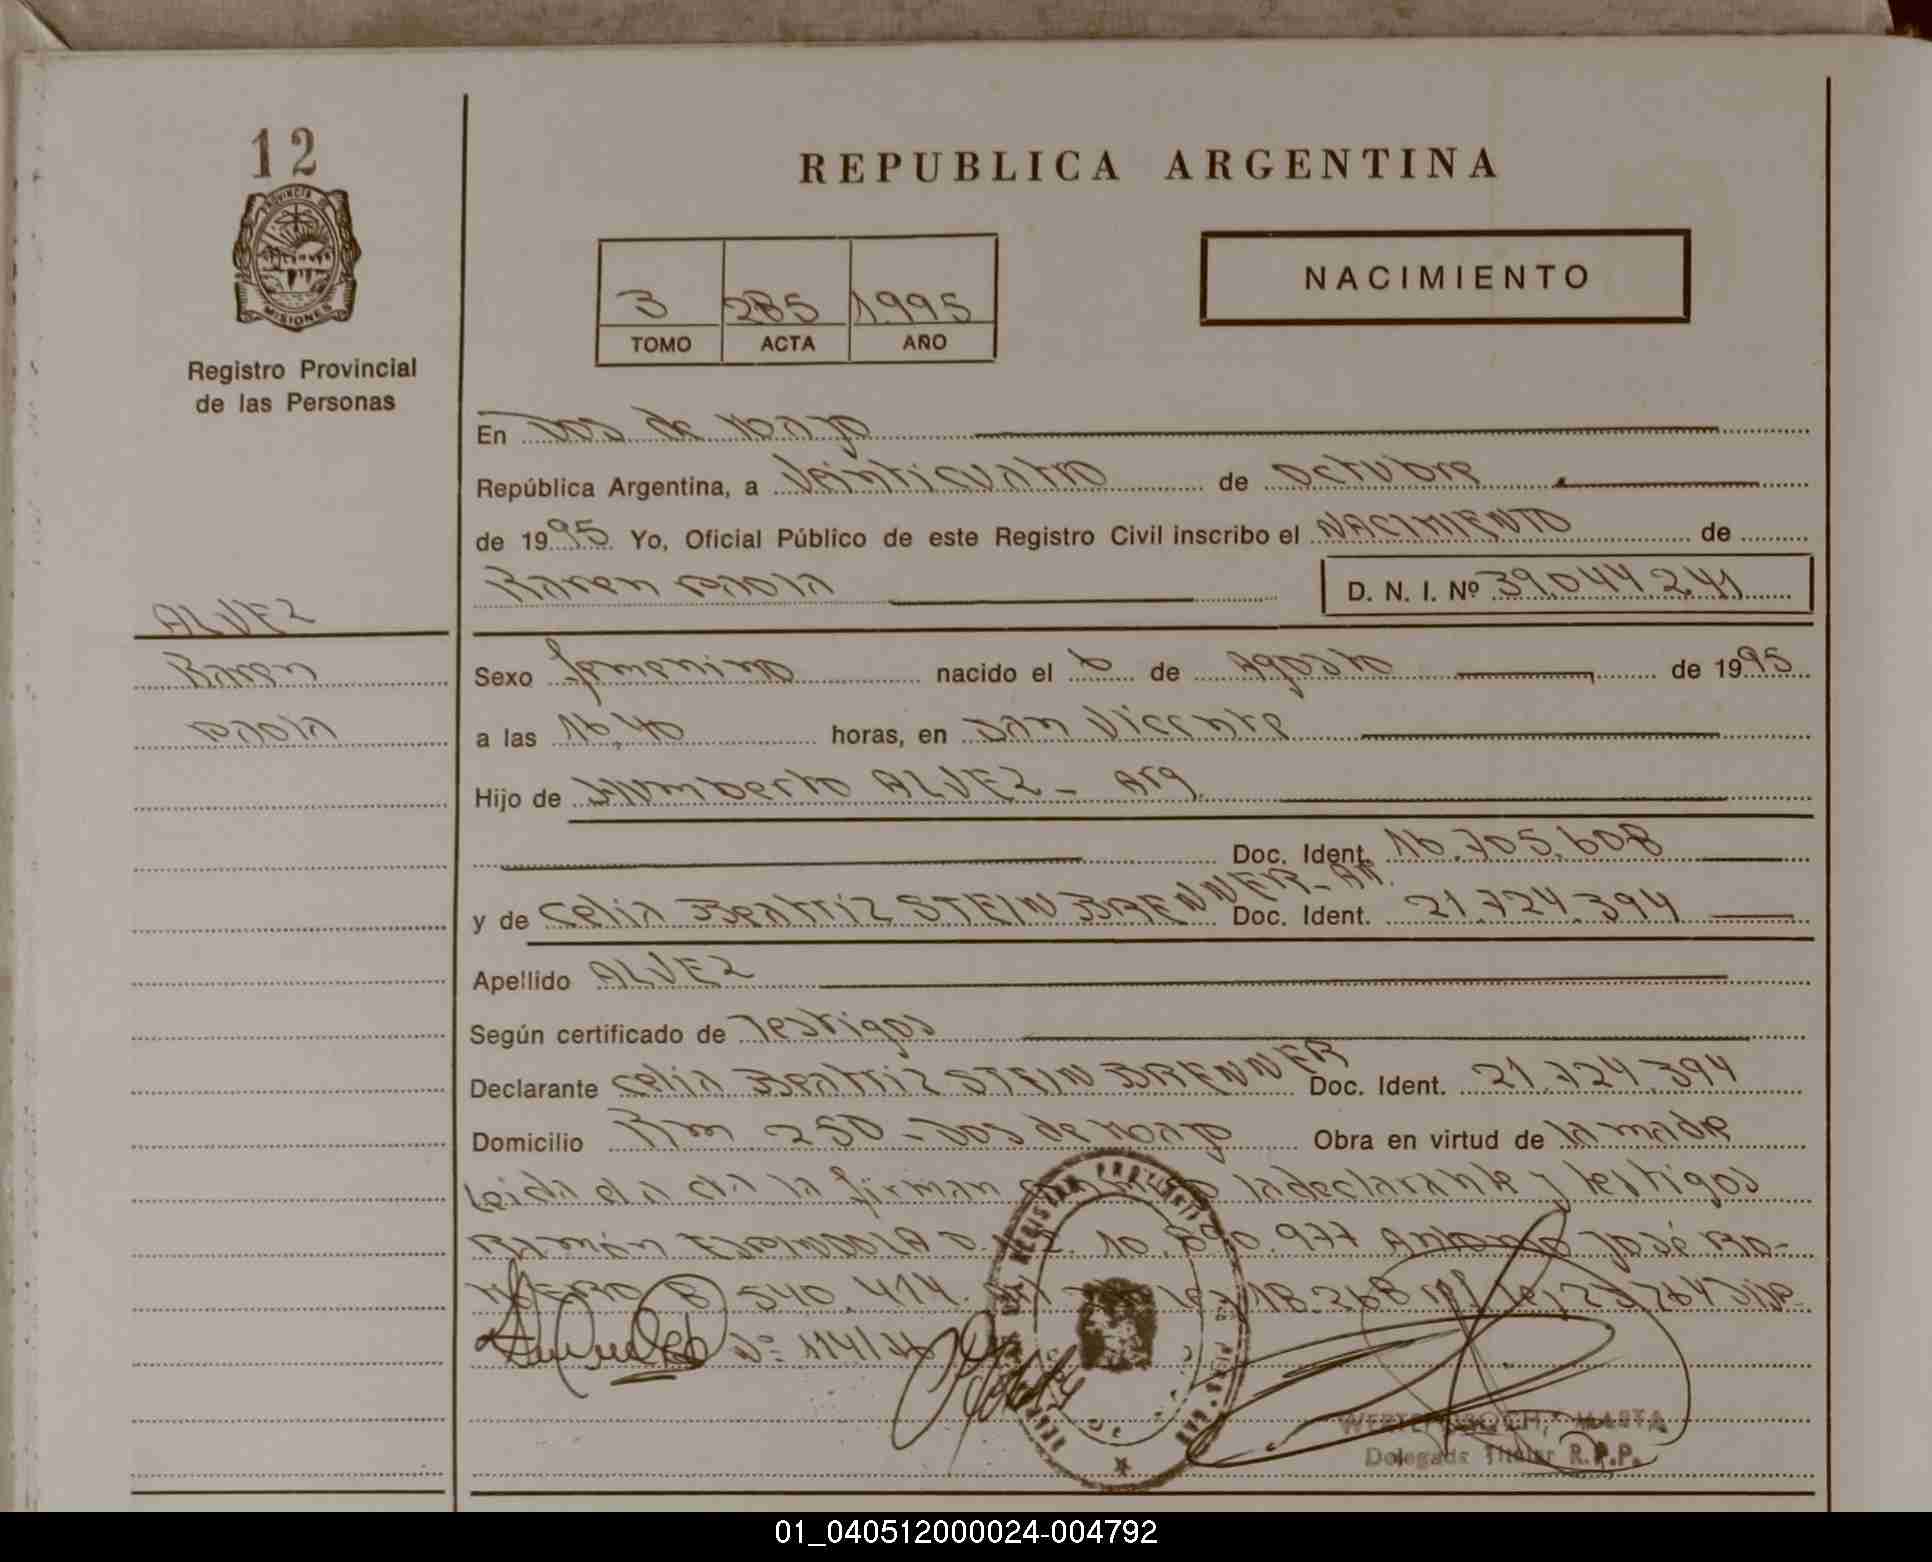 12
PROVINCIA DE
MISIONES
Registro Provincial
de las Personas
REPUBLICA ARGENTINA
3 285 1995
TOMO ACTA AÑO
NACIMIENTO
En Dos de Mayo
República Argentina, a Veinticuatro de octubre
de 1995 Yo, Oficial Público de este Registro Civil inscribo el NACIMIENTO de
Karen Paola D. N. I. Nº 39.044.241
ALVEZ
Karen
Paola
Sexo femenino nacido el 6 de Agosto de 1995
a las 16,40 horas, en San Vicente
Hijo de Humberto ALVEZ - Arg.
Doc. Ident. 16.705.608
y de Celia Beatriz STEIN BRENNER - Ar. Doc. Ident. 21.724.394
Apellido ALVEZ
Según certificado de Testigos
Declarante Celia Beatriz STEIN BRENNER Doc. Ident. 21.724.394
Domicilio Km 250 - Dos de Mayo Obra en virtud de la madre
Leida el acta la firman la declarante y testigos
Ramón 977 Antonio José Ro-
MERO 540.474. ley 18.268
Nº 114/
MARTA
Delegada Titular R.P.P.
01_040512000024-004792